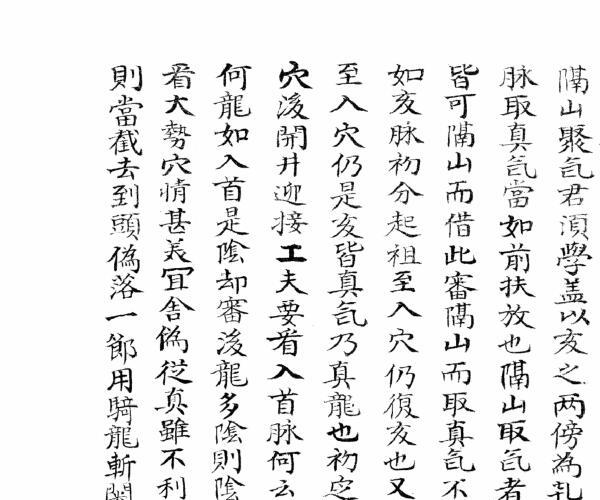 隔山聚氣君須學盖以亥之两傍為乳
脉取真氣當如前扶放也隔山取氣者
皆可隔山而借此審隔山而取真氣不
如亥脉初分起祖至入穴仍復亥也又
至入穴仍是亥皆真氣乃真龍也初定
穴後開井迎接工夫要看入首脉何云
何龍如入首是陰却審後龍多陰則陰
看大勢穴情甚美冝舍偽從真雖不利
則當截去到頭偽落一節用騎龍斬關